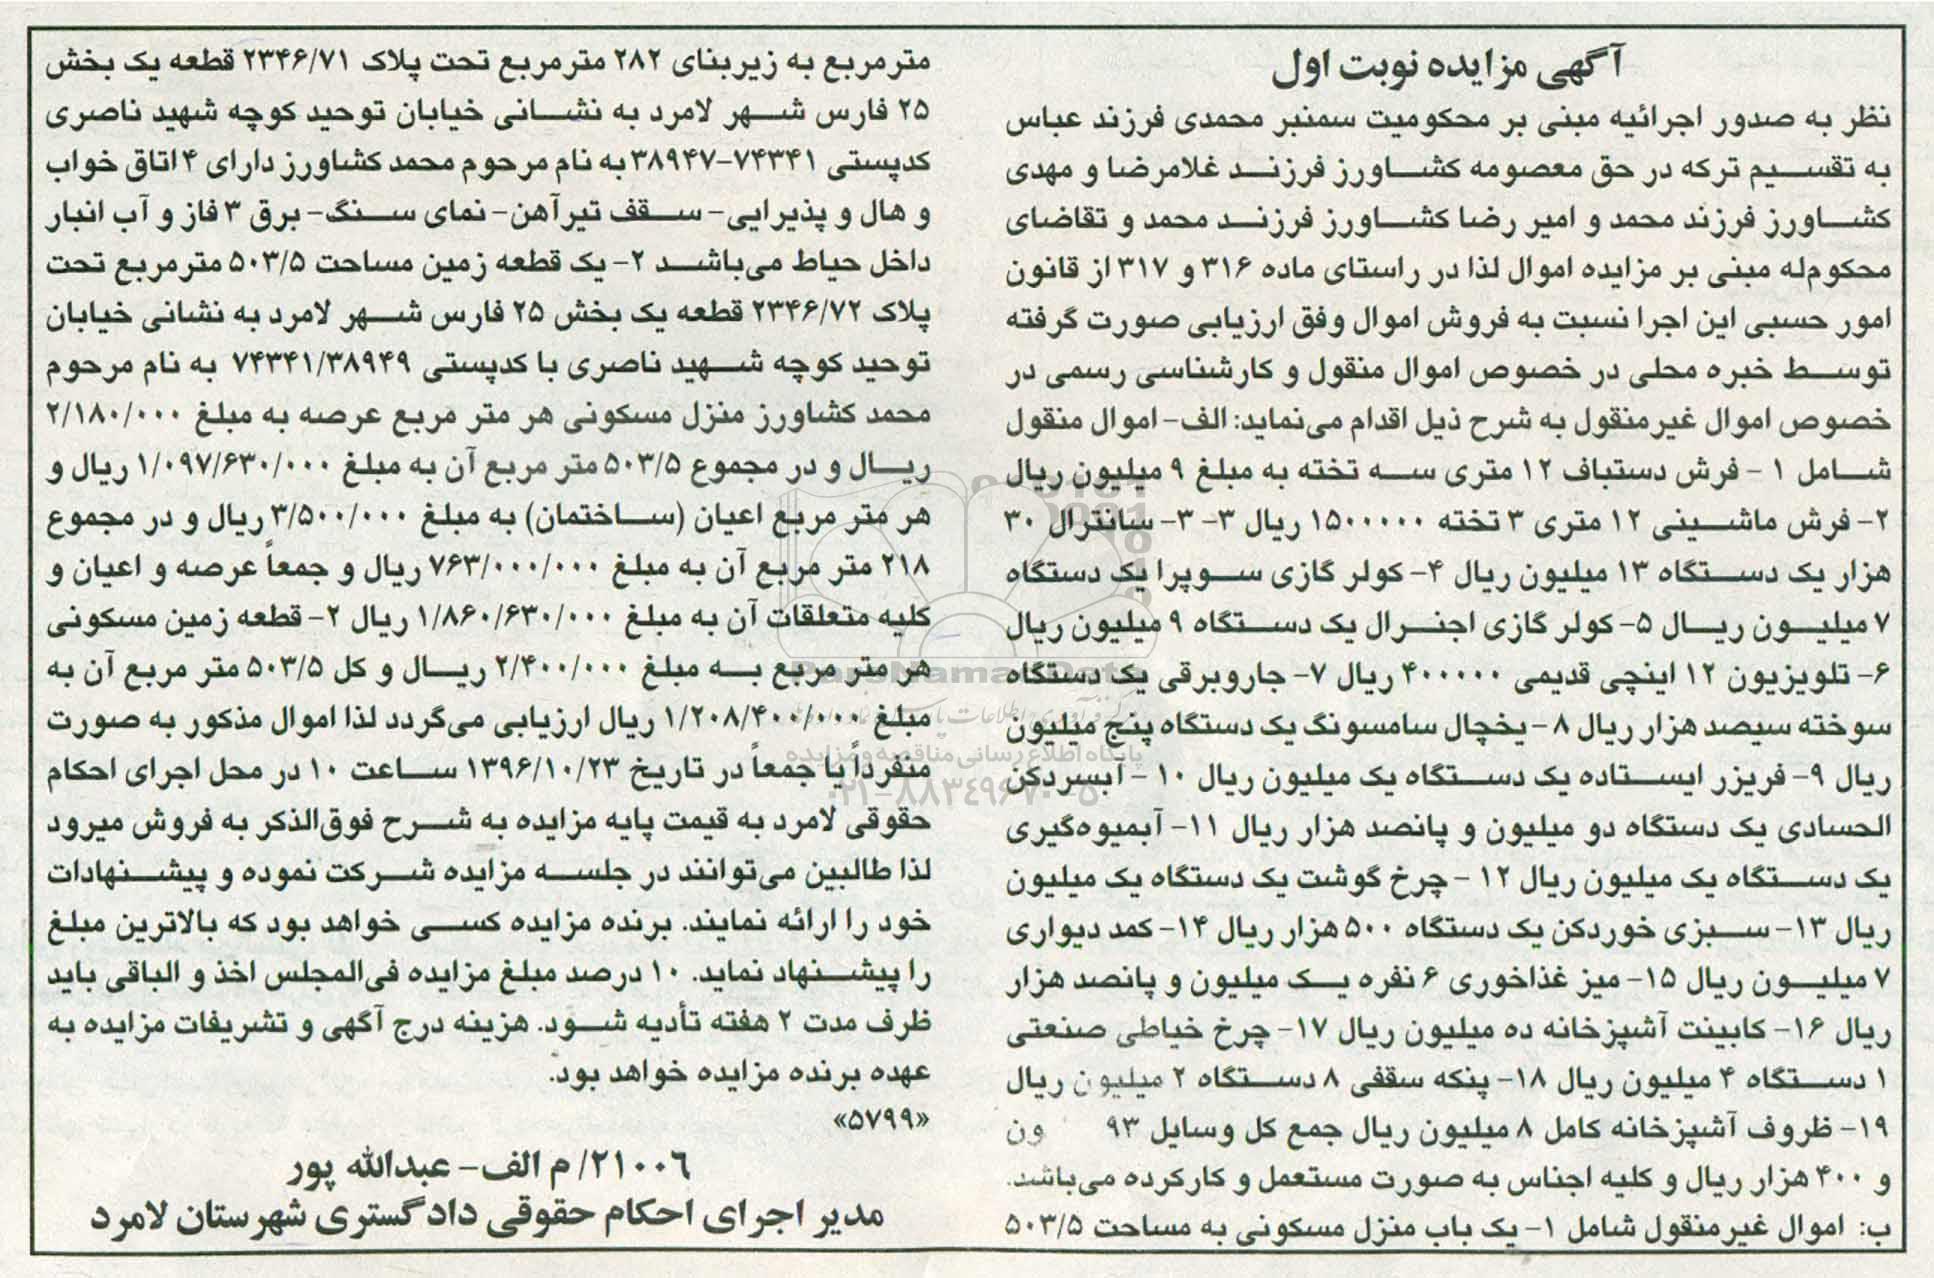 آگهی مزایده نوبت اول
نظر به صدور اجرائیه مبنی بر محکومیت سمنبر محمدی فرزند عباس
به تقسیم ترکه در حق معصومه کشاورز فرزند غلامرضا و مهدی
کشاورز فرزند محمد و امیر رضا کشاورز فرزند محمد و تقاضای
محکوم‌له مبنی بر مزایده اموال لذا در راستای ماده ۳۱۶ و ۳۱۷ از قانون
امور حسبی این اجرا نسبت به فروش اموال وفق ارزیابی صورت گرفته
توسط خبره محلی در خصوص اموال منقول و کارشناسی رسمی در
خصوص اموال غیرمنقول به شرح ذیل اقدام می‌نماید: الف- اموال منقول
شامل ۱ - فرش دستباف ۱۲ متری سه تخته به مبلغ ۹ میلیون ریال
۲- فرش ماشینی ۱۲ متری ۳ تخته ۱۵۰۰۰۰۰ ریال ۳- ۳- سانترال ۳۰
هزار یک دستگاه ۱۳ میلیون ریال ۴- کولر گازی سوپرا یک دستگاه
۷ میلیون ریال ۵- کولر گازی اجنرال یک دستگاه ۹ میلیون ریال
۶- تلویزیون ۱۲ اینچی قدیمی ۴۰۰۰۰۰ ریال ۷- جاروبرقی یک دستگاه
سوخته سیصد هزار ریال ۸ - یخچال سامسونگ یک دستگاه پنج میلیون
ریال ۹- فریزر ایستاده یک دستگاه یک میلیون ریال ۱۰ - آبسردکن
الحسادی یک دستگاه دو میلیون و پانصد هزار ریال ۱۱- آبمیوه‌گیری
یک دستگاه یک میلیون ریال ۱۲ - چرخ گوشت یک دستگاه یک میلیون
ریال ۱۳- سبزی خوردکن یک دستگاه ۵۰۰ هزار ریال ۱۴- کمد دیواری
۷ میلیون ریال ۱۵- میز غذاخوری ۶ نفره یک میلیون و پانصد هزار
ریال ۱۶- کابینت آشپزخانه ده میلیون ریال ۱۷- چرخ خیاطی صنعتی
۱ دستگاه ۴ میلیون ریال ۱۸- پنکه سقفی ۸ دستگاه ۲ میلیون ریال
۱۹- ظروف آشپزخانه کامل ۸ میلیون ریال جمع کل وسایل ۹۳ ون
و ۴۰۰ هزار ریال و کلیه اجناس به صورت مستعمل و کارکرده می‌باشد.
ب: اموال غیرمنقول شامل ۱- یک باب منزل مسکونی به مساحت ۵۰۳/۵
مترمربع به زیربنای ۲۸۲ مترمربع تحت پلاک ۲۳۴۶/۷۱ قطعه یک بخش
۲۵ فارس شهر لامرد به نشانی خیابان توحید کوچه شهید ناصری
کدپستی ۷۴۳۴۱-۳۸۹۴۷ به نام مرحوم محمد کشاورز دارای ۴ اتاق خواب
و هال و پذیرایی- سقف تیرآهن- نمای سنگ- برق ۳ فاز و آب انبار
داخل حیاط می‌باشد ۲- یک قطعه زمین مساحت ۵۰۳/۵ مترمربع تحت
پلاک ۲۳۴۶/۷۲ قطعه یک بخش ۲۵ فارس شهر لامرد به نشانی خیابان
توحید کوچه شهید ناصری با کدپستی ۷۴۳۴۱/۳۸۹۴۹ به نام مرحوم
محمد کشاورز منزل مسکونی هر متر مربع عرصه به مبلغ ۲/۱۸۰/۰۰۰
ریال و در مجموع ۵۰۳/۵ متر مربع آن به مبلغ ۱/۰۹۷/۶۳۰/۰۰۰ ریال و
هر متر مربع اعیان (ساختمان) به مبلغ ۳/۵۰۰/۰۰۰ ریال و در مجموع
۲۱۸ متر مربع آن به مبلغ ۷۶۳/۰۰۰/۰۰۰ ریال و جمعاً عرصه و اعیان و
کلیه متعلقات آن به مبلغ ۱/۸۶۰/۶۳۰/۰۰۰ ریال ۲- قطعه زمین مسکونی
هر متر مربع به مبلغ ۲/۴۰۰/۰۰۰ ریال و کل ۵۰۳/۵ متر مربع آن به
مبلغ ۱/۲۰۸/۴۰۰/۰۰۰ ریال ارزیابی می‌گردد لذا اموال مذکور به صورت
منفرداً یا جمعاً در تاریخ ۱۳۹۶/۱۰/۲۳ ساعت ۱۰ در محل اجرای احکام
حقوقی لامرد به قیمت پایه مزایده به شرح فوق‌الذکر به فروش میرود
لذا طالبین می‌توانند در جلسه مزایده شرکت نموده و پیشنهادات
خود را ارائه نمایند. برنده مزایده کسی خواهد بود که بالاترین مبلغ
را پیشنهاد نماید. ۱۰ درصد مبلغ مزایده فی‌المجلس اخذ و الباقی باید
ظرف مدت ۲ هفته تأدیه شود. هزینه درج آگهی و تشریفات مزایده به
عهده برنده مزایده خواهد بود.
«۵۷۹۹»
۲۱۰۰۶/ م الف- عبدالله پور
مدیر اجرای احکام حقوقی دادگستری شهرستان لامرد
پایگاه اطلاع رسانی مناقصه و مزایده
۰۲۱-۸۸۳۴۹۶۷۰-۵